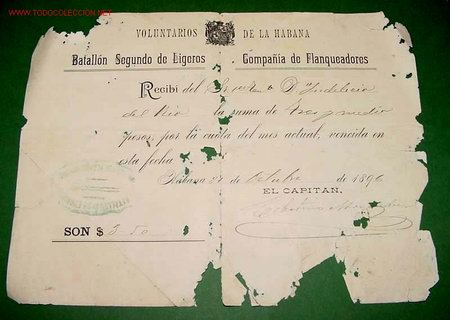 www.todocoleccion.net
VOLUNTARIOS DE LA HABANA
Batallón Segundo de Ligeros Compañía de Flanqueadores
Recibí del Sr. D. Indalecio
del Rio la suma de tres y medio
pesos, por la cuota del mes actual, vencida en
esta fecha
Habana 29 de Octubre de 1896
EL CAPITAN,
SON $ 3 50